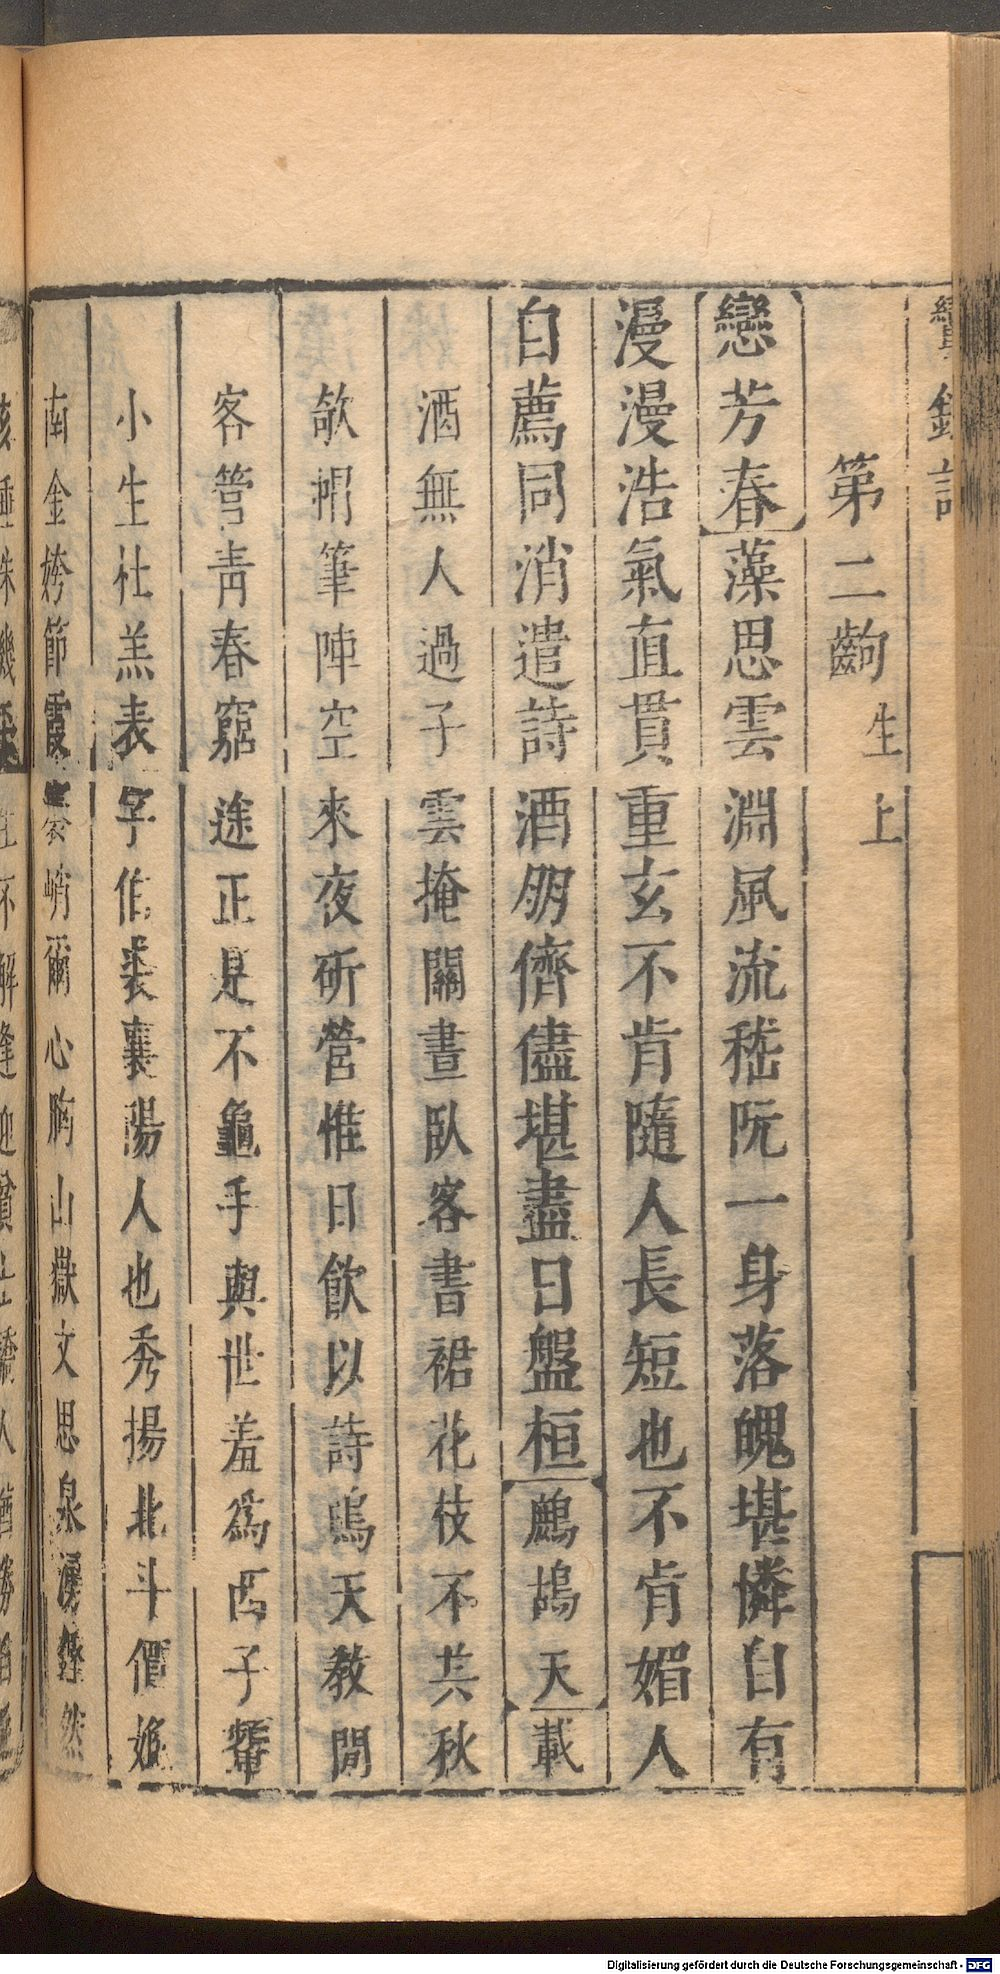 第二齣 生上
戀芳春 藻思雲淵風流嵇阮一身落魄堪憐自有
漫漫浩氣直貫重玄不肯隨人長短也不肯媚人
自薦同消遣詩酒朋儕儘堪盡日盤桓 鷓鴣天 載
酒無人過子雲掩關晝臥客書裙花枝不共秋
欹帽筆陣空來夜斫營惟日飲以詩鳴天教閒
客管青春窮途正是不龜手與世羞爲西子顰
小生杜羔表字伯裘襄陽人也秀揚北斗價
南金姱節霞峭爾心胸山嶽文思泉湧鏗然
Digitalisierung gefördert durch die Deutsche Forschungsgemeinschaft - DFG